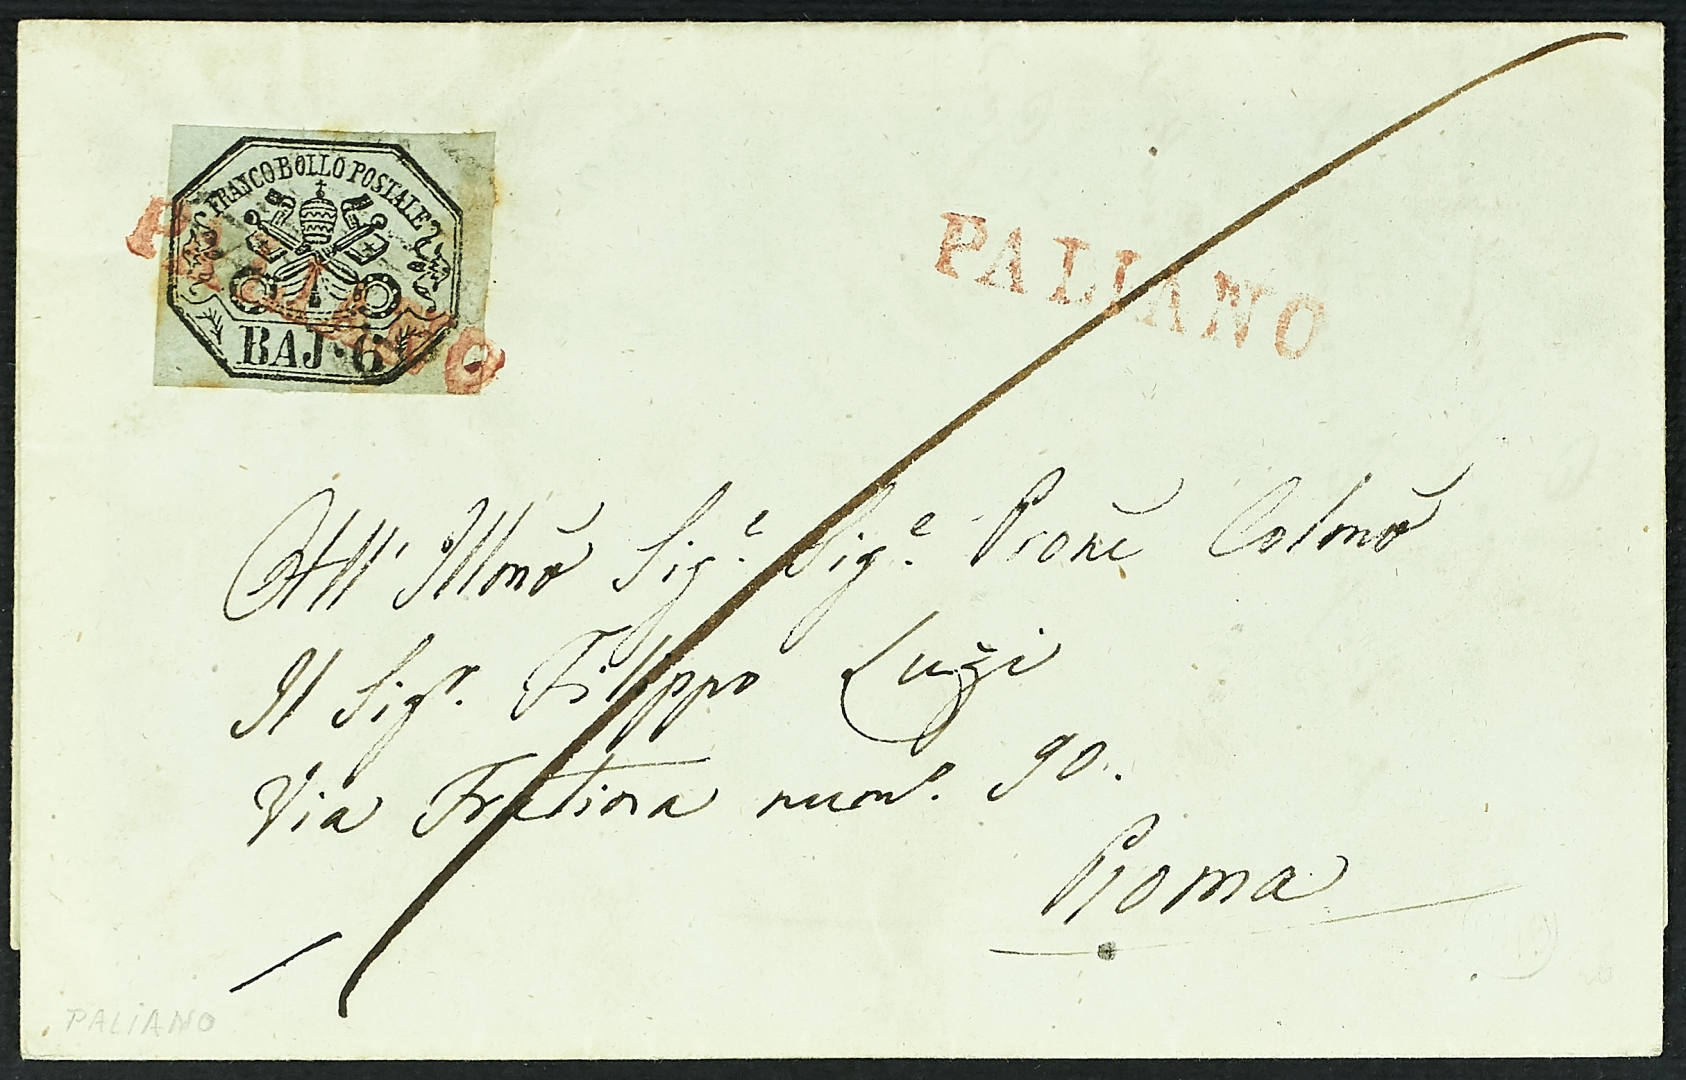 FRANCO BOLLO POSTALE
BAJ. 6
PALIANO
PALIANO
All' Illmõ Sig.e Sig.e Prõne Colmõ
Il Sigr. Filippo Luzi
Via Fratina numo. 90.
Roma
PALIANO